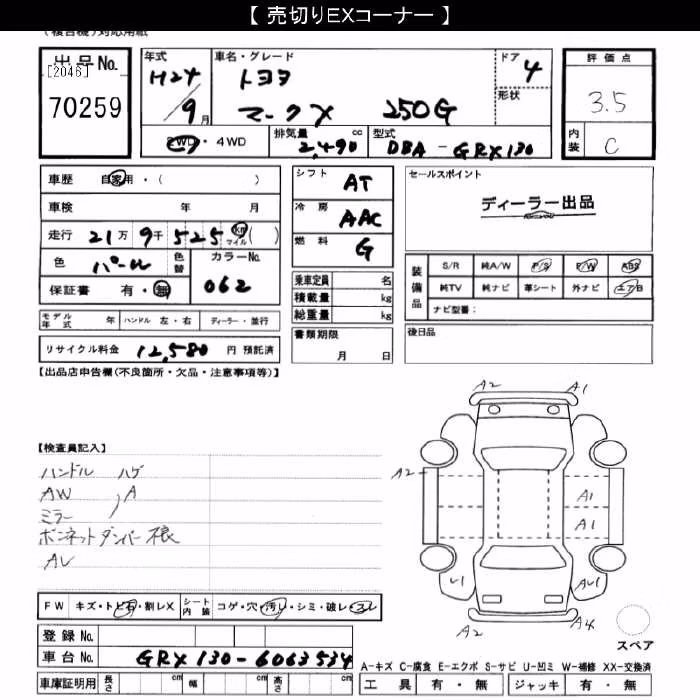 【 売切りEXコーナー 】
(複合機)対応用紙
出品No. [2046] 70259
年式 H24/9月
車名・グレード トヨタ マークX 250G
ドア 4
形状
評価点 3.5
内装 C
2WD・4WD 排気量 2,490 cc 型式 DBA-GRX130
車歴 自家用・( )
車検 年 月
走行 21万9千525 km マイル ( )
色 パール 色替 カラーNo. 062
保証書 有・無
モデル年式 年 ハンドル 左・右 ディーラー・並行
リサイクル料金 12,580 円 預託済
シフト AT
冷房 AAC
燃料 G
乗車定員 名
積載量 kg
総重量 kg
書類期限 月 日
セールスポイント
ディーラー出品
装備品 S/R 純A/W P/S P/W ABS
純TV 純ナビ 革シート 外ナビ エアB
ナビ型番:
後日品
【出品店申告欄(不良箇所・欠品・注意事項等)】
【検査員記入】
ハンドル ハゲ
AW , A
ミラー
ボンネットダンパー 根
AV
A2 A1
A2
A1
A1
U1 AU1
A2 A4
スペア
FW キズ・トビ石・割レX シート内装 コゲ・穴・汚レ・シミ・破レ・スレ
登録No.
車台No. GRX130-6063534
車庫証明用 長さ cm 幅 cm 高さ cm
A-キズ C-腐食 E-エクボ S-サビ U-凹ミ W-補修 XX-交換済
工具 有・無 ジャッキ 有・無